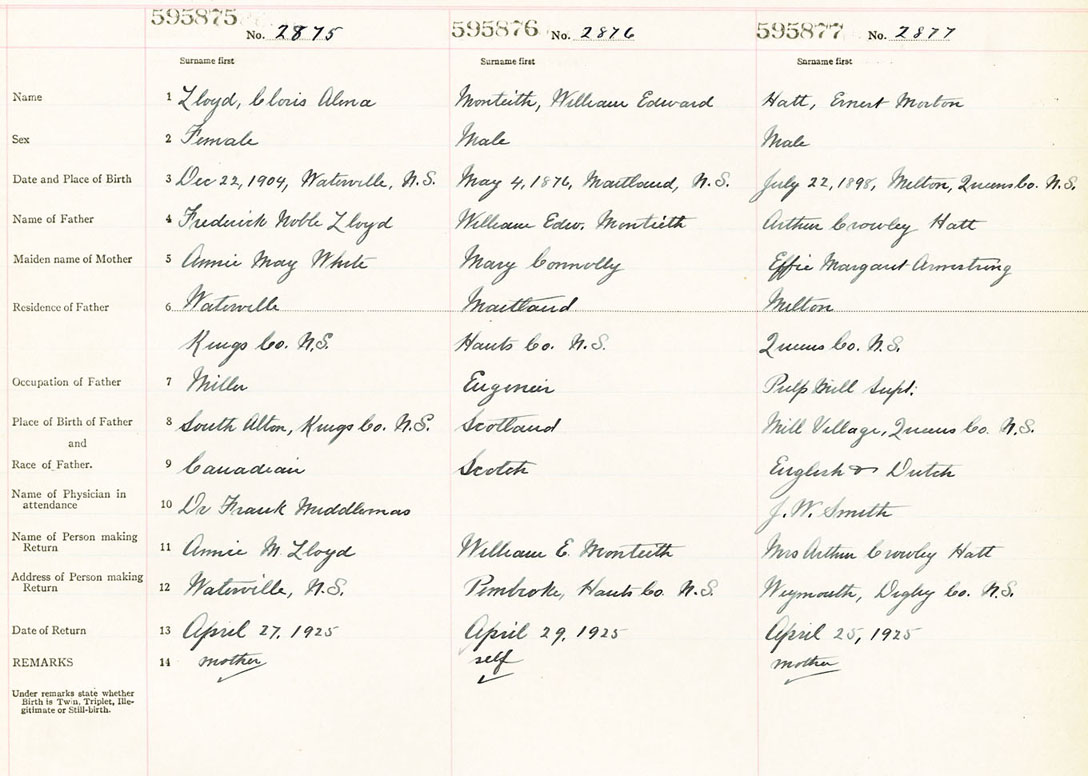 595875 No. 2875 595876 No. 2876 595877 No. 2877
Surname first Surname first Surname first
Name 1 Lloyd, Cloris Alma Monteith, William Edward Hatt, Ernest Morton
Sex 2 Female Male Male
Date and Place of Birth 3 Dec 22, 1904, Waterville, N.S. May 4, 1876, Maitland, N.S. July 22, 1898, Melton, Queens Co. N.S.
Name of Father 4 Frederick Noble Lloyd William Edw. Montieth Arthur Crowley Hatt
Maiden name of Mother 5 Annie May White Mary Connolly Effie Margaret Armstrong
Residence of Father 6 Waterville Maitland Milton
Kings Co. N.S. Hants Co. N.S. Queens Co. N.S.
Occupation of Father 7 Miller Engineer Pulp Mill Supt.
Place of Birth of Father 8 South Alton, Kings Co. N.S. Scotland Mill Village, Queens Co. N.S.
and
Race of Father. 9 Canadian Scotch English & Dutch
Name of Physician in
attendance 10 Dr Frank Middlemas J. W. Smith
Name of Person making
Return 11 Annie M. Lloyd William E. Montieth Mrs Arthur Crowley Hatt
Address of Person making
Return 12 Waterville, N.S. Pembroke, Hants Co. N.S. Weymouth, Digby Co. N.S.
Date of Return 13 April 27, 1925 April 29, 1925 April 25, 1925
REMARKS 14 mother self mother
Under remarks state whether
Birth is Twin, Triplet, Ille-
gitimate or Still-birth.